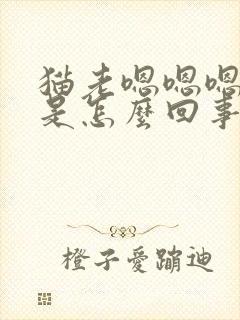 猫老嗯嗯嗯
是怎麼回事
橙子愛蹦迪